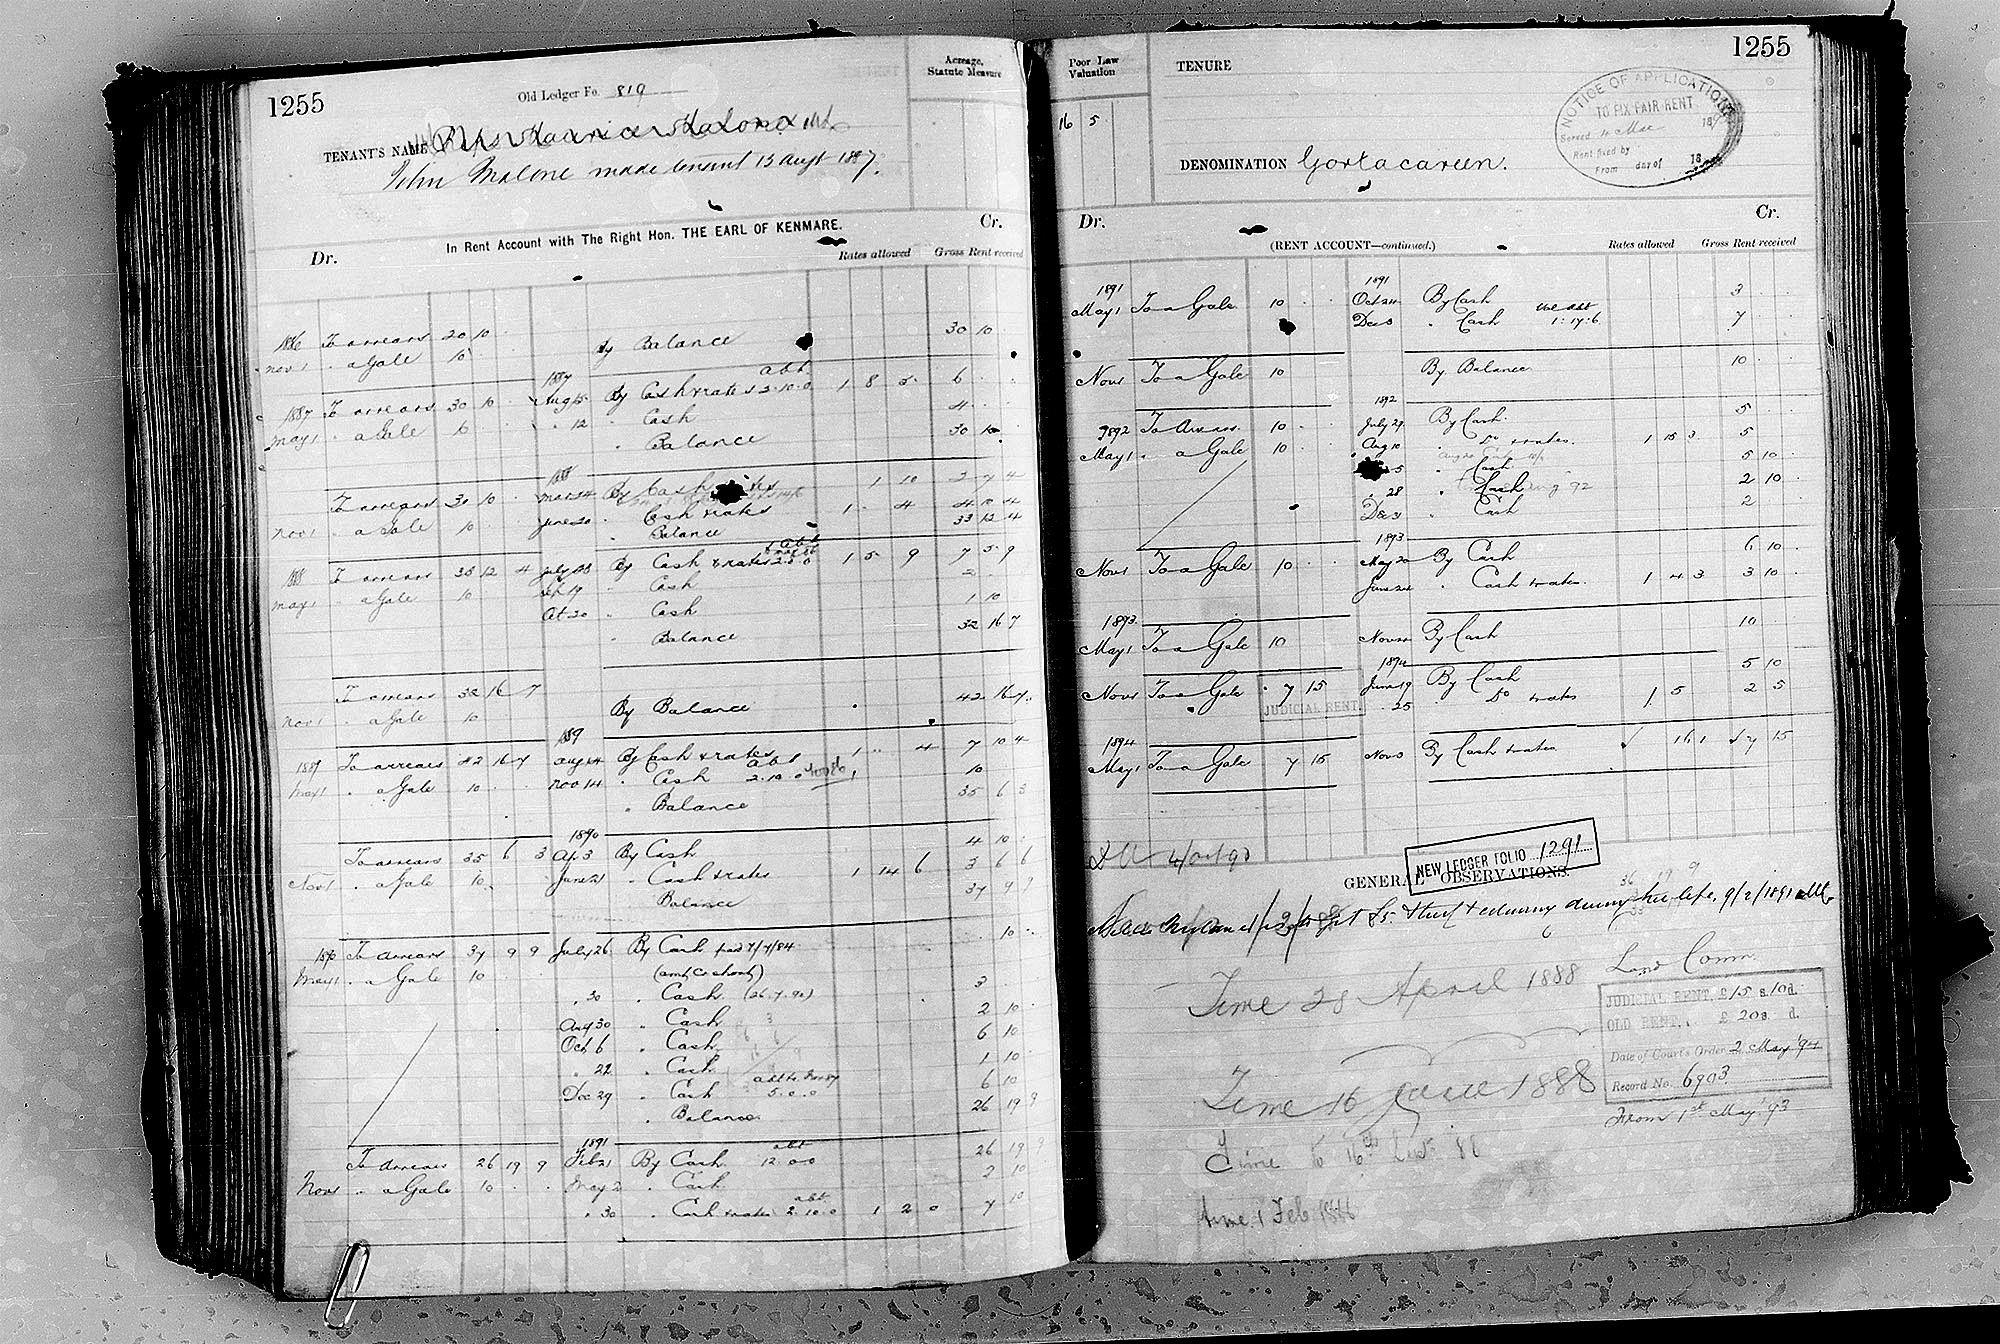 1255
Old Ledger Fo. 819
Acreage,
Statute Measure
TENANT'S NAME Reps Maurice Malone
John Malone made tenant 13 Augt 1887.
In Rent Account with The Right Hon. THE EARL OF KENMARE.
Dr. Cr.
Rates allowed Gross Rent received
1886 To arrears 20 10 By Balance 30 10
Nov 1 " a Gale 10
1887 abt
1887 To arrears 30 10 Aug 5 By Cash & rates 2.10.0 1 8 5 6
May 1 " a Gale " 12 " Cash 4
" Balance 30 10
1888
To arrears 30 10 By Cash 1 10
Nov 1 " a Gale 10 June 20 " Cash & rates 1 4
" Balance 33 12 4
1888 To arrears 33 12 4 July By Cash & rates 2.0.0 1 5 9 7 5 9
May 1 " a Gale 10 Sep 19 " Cash 2
Oct 20 " Cash 1 10
" Balance 32 16 7
To arrears 32 16 7 By Balance 42 16 7
Nov 1 " a Gale 10
1889
1889 To arrears 42 16 7 Aug 14 By Cash & rates 1 4 7 10 4
May 1 " a Gale 10 Nov 14 " Cash abt 2.10.0
" Balance 35 6 3
1890
To arrears 35 6 3 Ap 3 By Cash 4 10
Nov 1 " a Gale 10 June 21 " Cash & rates 1 14 6 3 6 6
Balance 37 9 9
1890 To arrears 37 9 9 July 26 By Cash paid 7/7/84 10
May 1 " a Gale 10
" 30 " Cash (26.7.90) 3
Aug 30 " Cash 2 10
Oct 6 " Cash 6 10
" 22 " Cash 1 10
Dec 29 " Cash 5.0.0 6 10
" Balance 26 19 9
1891 abt
To arrears 26 19 9 Feb 21 By Cash 12.0.0 26 19 9
Nov 1 " a Gale 10 May 2 " Cash 2 10
abt
" 30 " Cash & rates 2.10.0 1 2 0 7 10
1255
Poor Law
Valuation
TENURE
16 5
NOTICE OF APPLICATION
TO FIX FAIR RENT
Served 10 Mar 18
Rent fixed by
From day of 18
DENOMINATION Gortacareen.
Dr. Cr.
(RENT ACCOUNT—continued.)
Rates allowed Gross Rent received
1891 1891
May 1 To a Gale 10 Oct 24 By Cash 3
Dec 8 " Cash 1.17.6 7
Nov 1 To a Gale 10 By Balance 10
1892
1892 To Arrears 10 July 29 By Cash 5
May 1 " a Gale 10 Aug 10 " Do & rates 1 15 3 5
" Cash 5 10
" 28 " Cash 2 10
Dec 31 " Cash 2
1893
Nov 1 To a Gale 10 May 20 By Cash 6 10
June 24 " Cash & rates 1 4 3 3 10
1893
May 1 To a Gale 10 Nov By Cash 10
1894
Nov 1 To a Gale 7 15 June 19 By Cash 5 10
JUDICIAL RENT " 25 " Do & rates 1 5 2 5
1894
May 1 To a Gale 7 15 Nov By Cash & rates 16 1 7 15
NEW LEDGER FOLIO 1291
GENERAL OBSERVATIONS.
36 19 9
during her life. 9/2/1891
Time 28 April 1888
Land Comn.
JUDICIAL RENT, £15 s.10 d.
OLD RENT, £ 20 s. d.
Date of Court's Order 2 May '94
Record No. 6903
From 1st May '93
Time 16 June 1888
Time to 16th
Time 1 Feb 1886